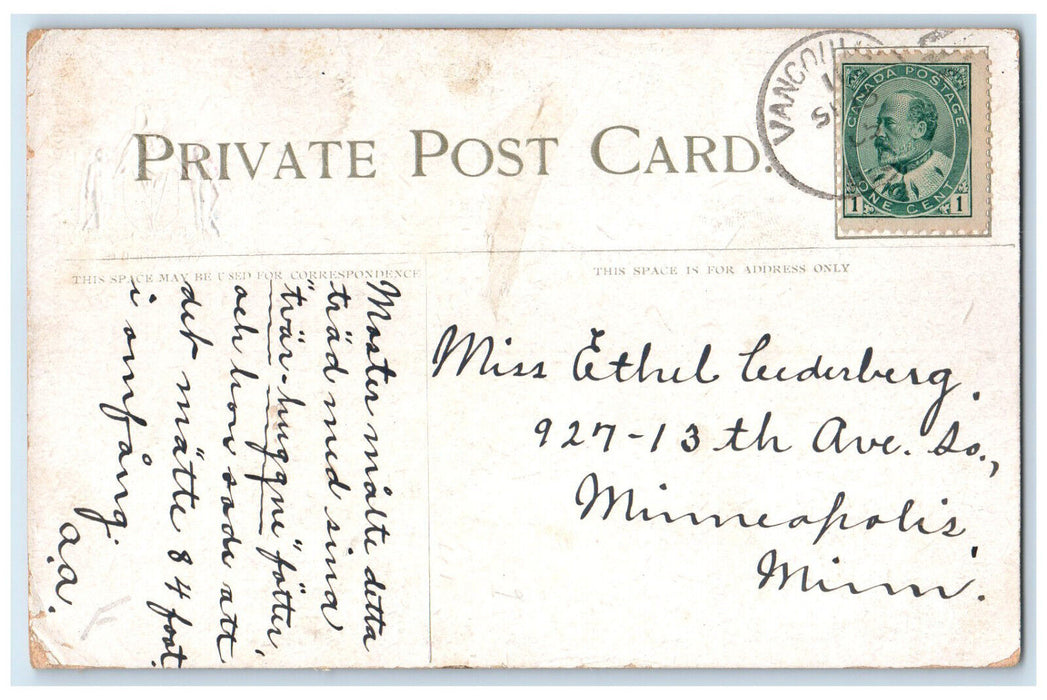 PRIVATE POST CARD.
VANCOUV
CANADA POSTAGE
1 ONE CENT 1
THIS SPACE MAY BE USED FOR CORRESPONDENCE
THIS SPACE IS FOR ADDRESS ONLY
Moster mätte detta
träd med sina
"tvär-huggne" fötter,
och hon sade att
det mätte 84 foot
i omfång.
a.a.
Miss Ethel Cederberg.
927-13th Ave. So.,
Minneapolis,
Minn.